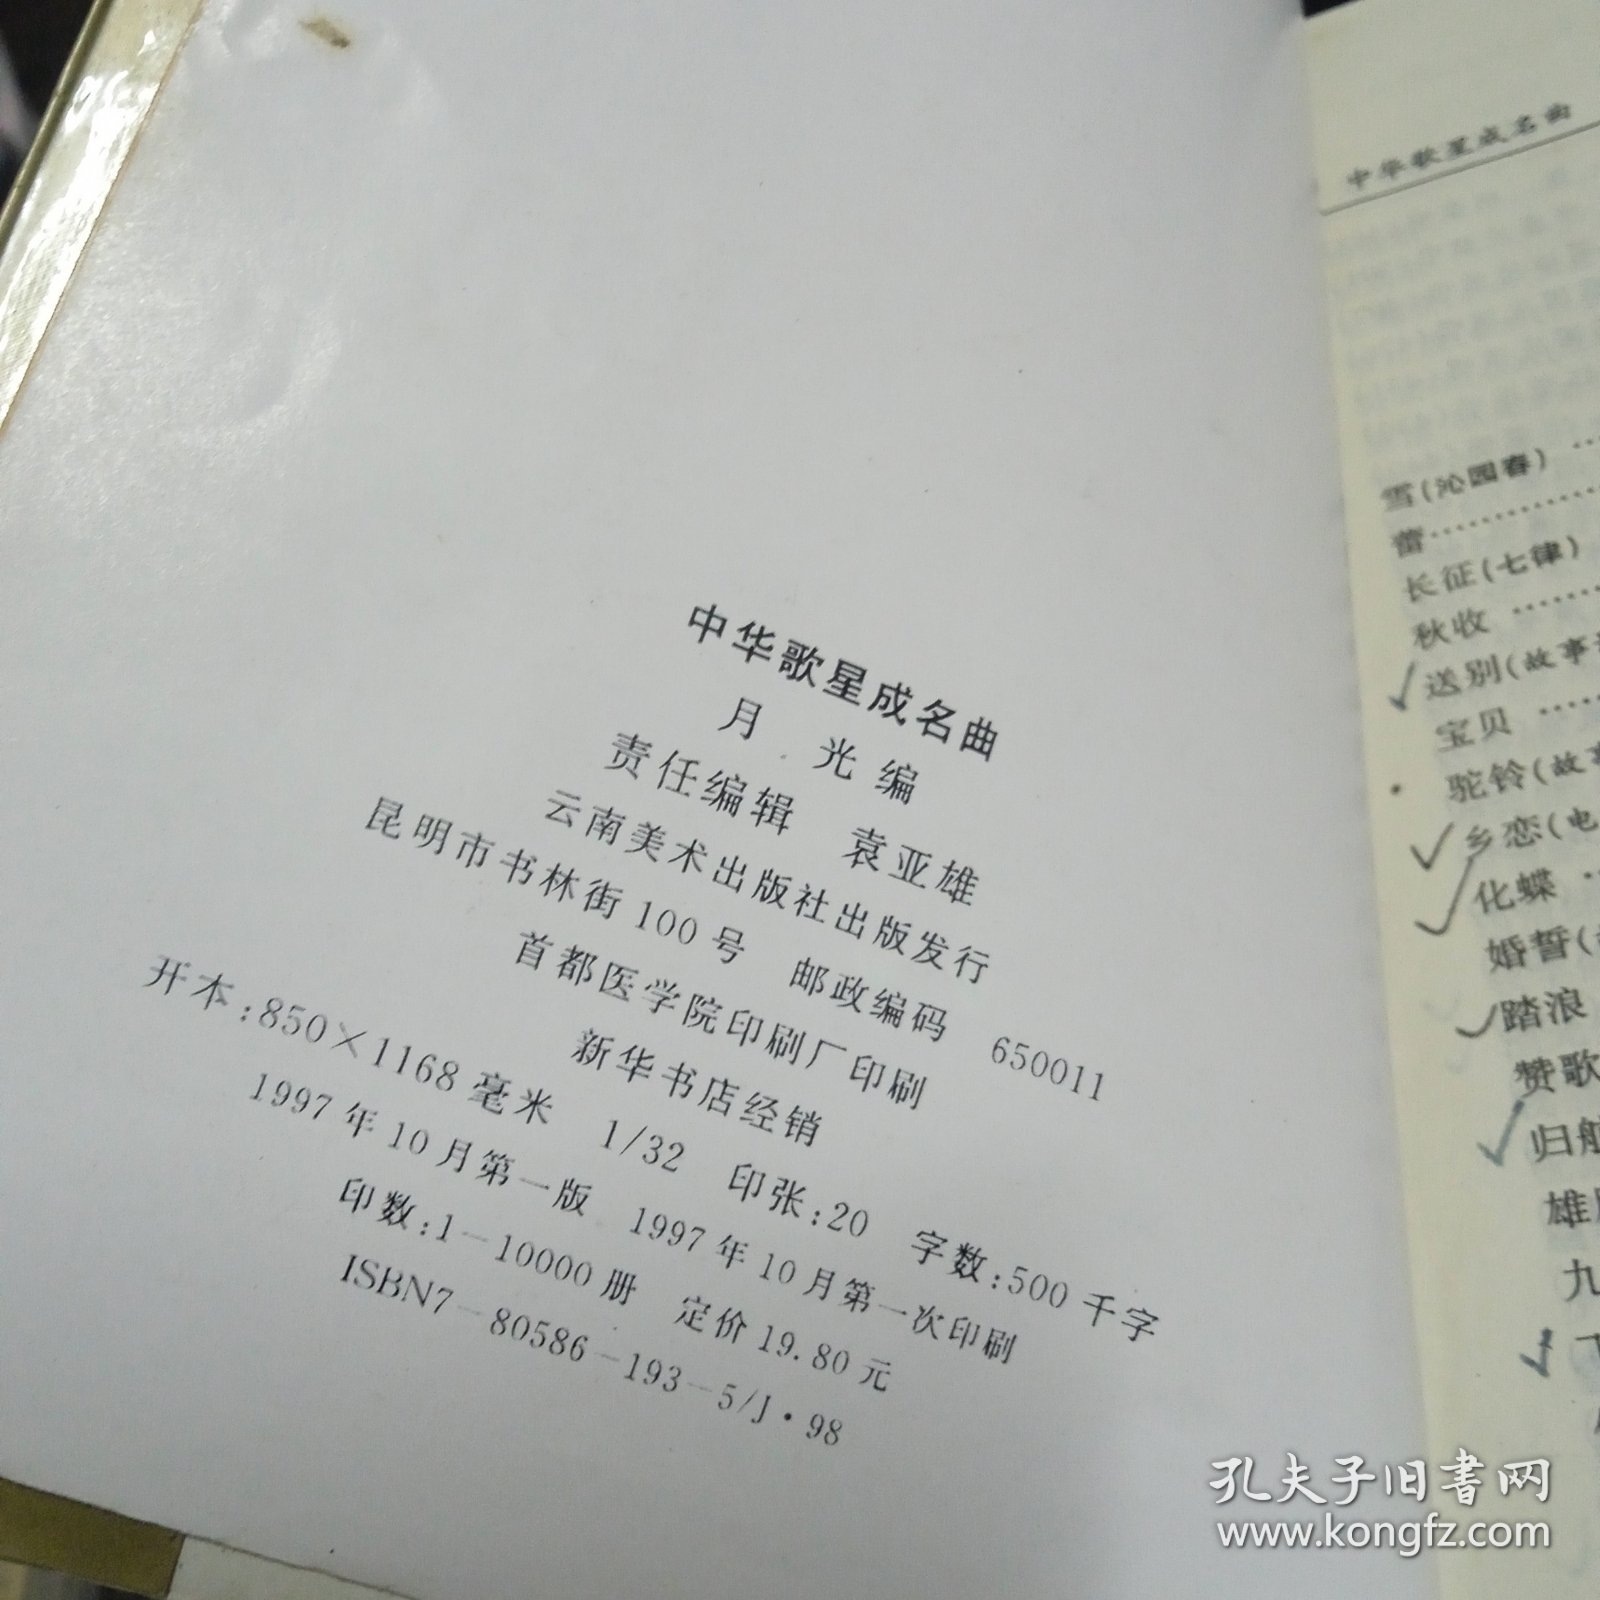 中华歌星成名曲
月 光 编
责任编辑 袁亚雄
云南美术出版社出版发行
昆明市书林街100号 邮政编码 650011
首都医学院印刷厂印刷
新华书店经销
开本:850×1168毫米 1/32 印张:20 字数:500千字
1997年10月第一版 1997年10月第一次印刷
印数:1-10000册 定价19.80元
ISBN7-80586-193-5/J·98
中华歌星成名曲
雪(沁园春) ……
蕾…………
长征(七律)
秋收 ………
送别(故事
宝贝 ……
驼铃(故事
乡恋(电
化蝶 …
婚誓(
踏浪
赞歌
归航
雄
九
孔夫子旧书网
www.kongfz.com